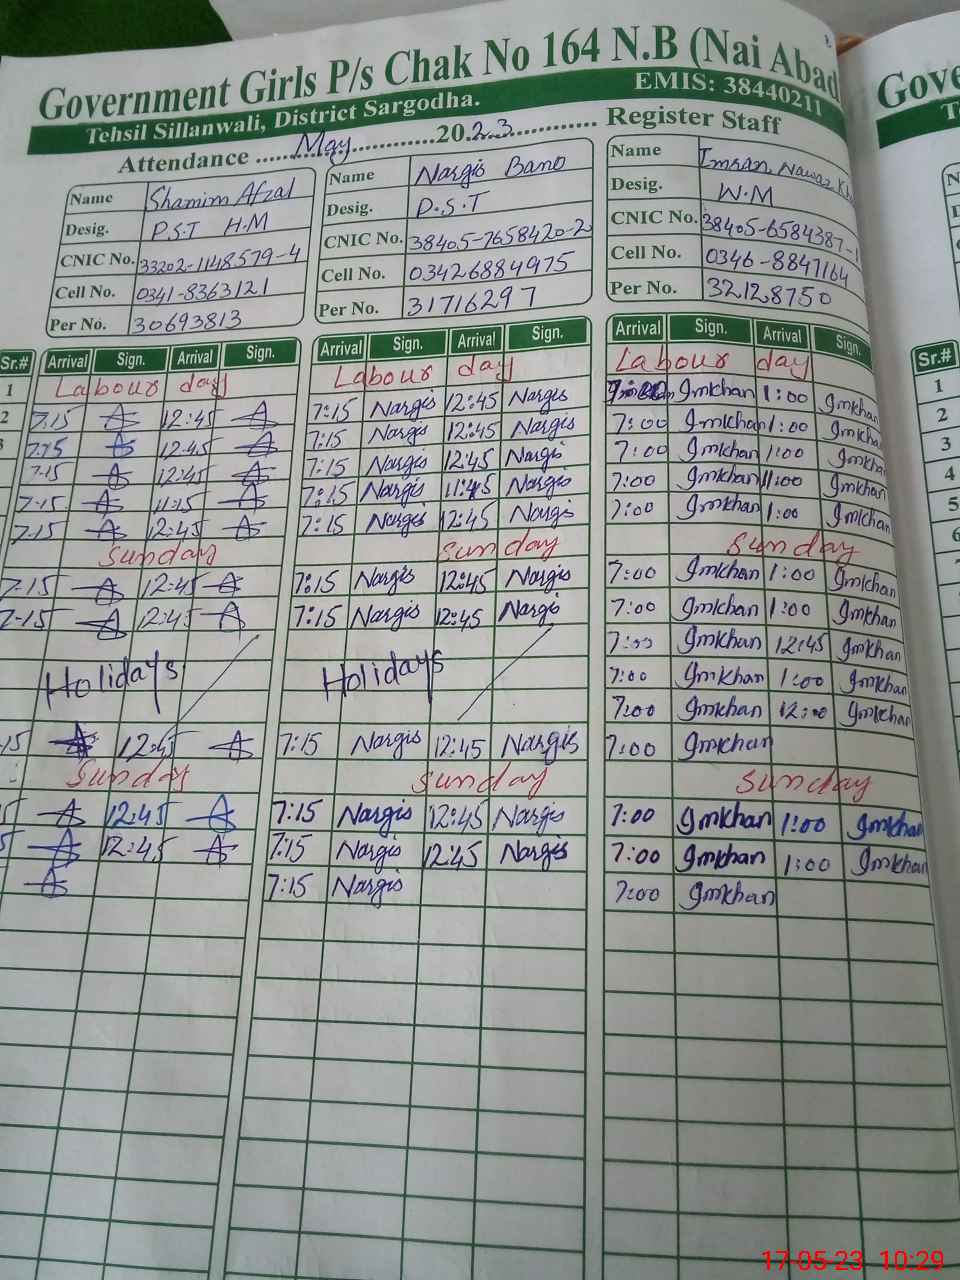 Government Girls P/s Chak No 164 N.B (Nai Abad
Tehsil Sillanwali, District Sargodha. EMIS: 38440211
Attendance ......May............2023............ Register Staff
Name Shamim Afzal
Desig. P.S.T H.M
CNIC No. 33202-1148579-4
Cell No. 0341-8363121
Per No. 30693813
Name Nargis Bano
Desig. P.S.T
CNIC No. 38405-7658420-2
Cell No. 03426884975
Per No. 31716297
Name Imran Nawaz Kh
Desig. W.M
CNIC No. 38405-6584387-1
Cell No. 0346-8847164
Per No. 32128750
Sr.# Arrival Sign. Arrival Sign. Arrival Sign. Arrival Sign. Arrival Sign. Arrival Sign.
1 Labour day Labour day Labour day
2 7:15 12:45 7:15 Nargis 12:45 Nargis 7:00 Imkhan 1:00 Imkhan
3 7:15 12:45 7:15 Nargis 12:45 Nargis 7:00 Imkhan 1:00 Imkhan
7:15 12:45 7:15 Nargis 12:45 Nargis 7:00 Imkhan 1:00 Imkhan
7-15 11:15 7:15 Nargis 11:45 Nargis 7:00 Imkhan 11:00 Imkhan
7-15 12:45 7:15 Nargis 12:45 Nargis 7:00 Imkhan 1:00 Imkhan
Sunday Sunday Sunday
7-15 12:45 7:15 Nargis 12:45 Nargis 7:00 Imkhan 1:00 Imkhan
7-15 12:45 7:15 Nargis 12:45 Nargis 7:00 Imkhan 1:00 Imkhan
7:00 Imkhan 12:45 Imkhan
Holidays Holidays 7:00 Imkhan 1:00 Imkhan
7:00 Imkhan 12:00 Imkhan
-15 12:45 7:15 Nargis 12:45 Nargis 7:00 Imkhan
Sunday Sunday Sunday
5 12:45 7:15 Nargis 12:45 Nargis 7:00 Imkhan 1:00 Imkhan
5 12:45 7:15 Nargis 12:45 Nargis 7:00 Imkhan 1:00 Imkhan
7:15 Nargis 7:00 Imkhan
Gove
Sr.#
1
2
3
4
5
6
17-05-23 10:29